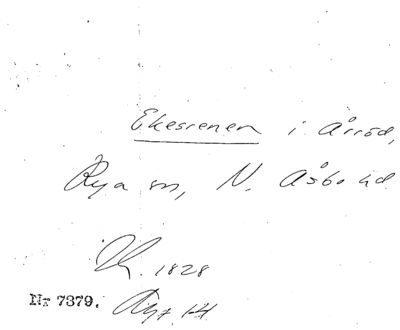 Ekesrenen i Årröd,
Rya sn, N. Åsbo hd
1828
Nr 7379. 14